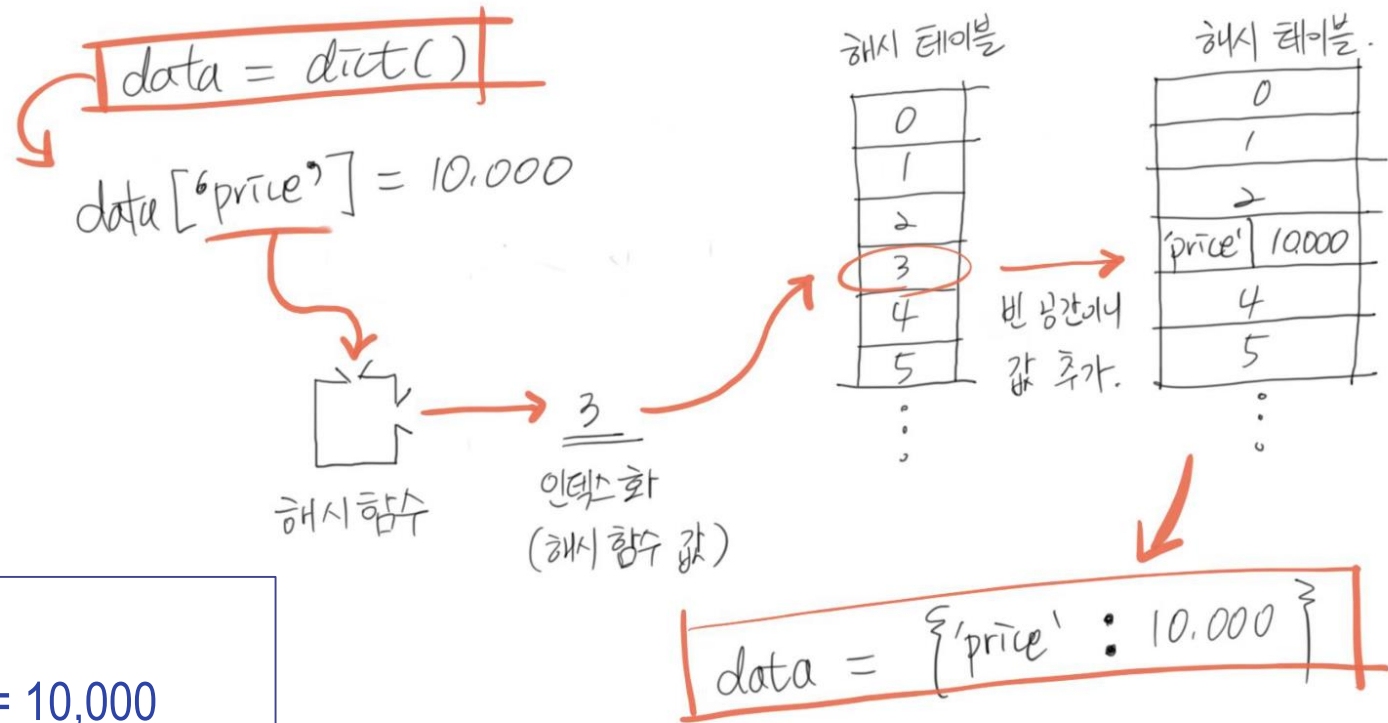 data = dict()
data['price'] = 10.000
해시 함수
3
인덱스화
(해시 함수 값)
해시 테이블
0
1
2
3
4
5
빈 공간이니
값 추가.
해시 테이블.
0
1
2
'price' 10.000
4
5
data = {'price' : 10.000}
= 10,000